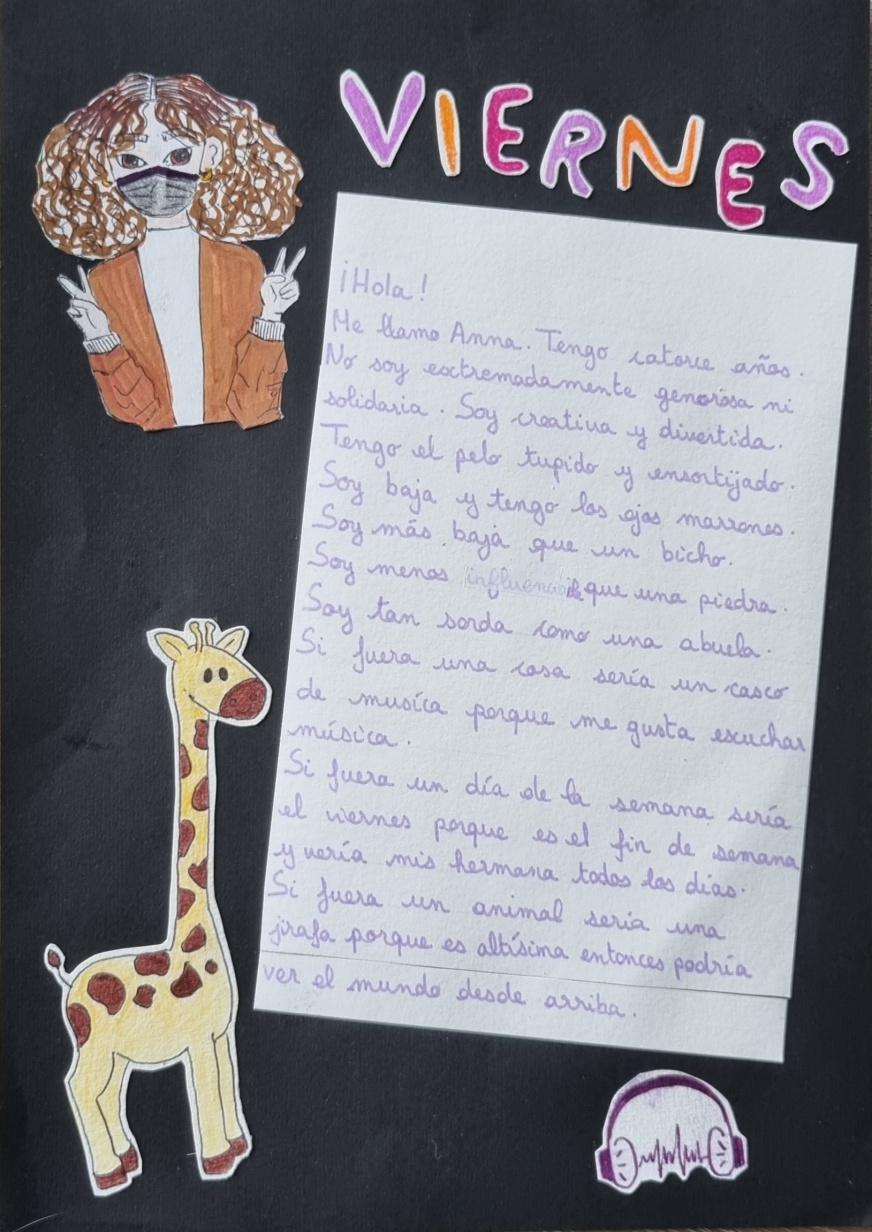 VIERNES
¡Hola!
Me llamo Anna. Tengo catorce años.
No soy exctremadamente generosa ni
solidaria. Soy creativa y divertida.
Tengo el pelo tupido y ensortijado.
Soy baja y tengo los ojos marrones.
Soy más baja que un bicho.
Soy menos influenciable que una piedra.
Soy tan sorda como una abuela.
Si fuera una cosa sería un casco
de musíca porque me gusta escuchar
música.
Si fuera un día de la semana sería
el viernes porque es el fin de semana
y vería mis hermana todos los días.
Si fuera un animal seria una
jirafa porque es altísima entonces podría
ver el mundo desde arriba.